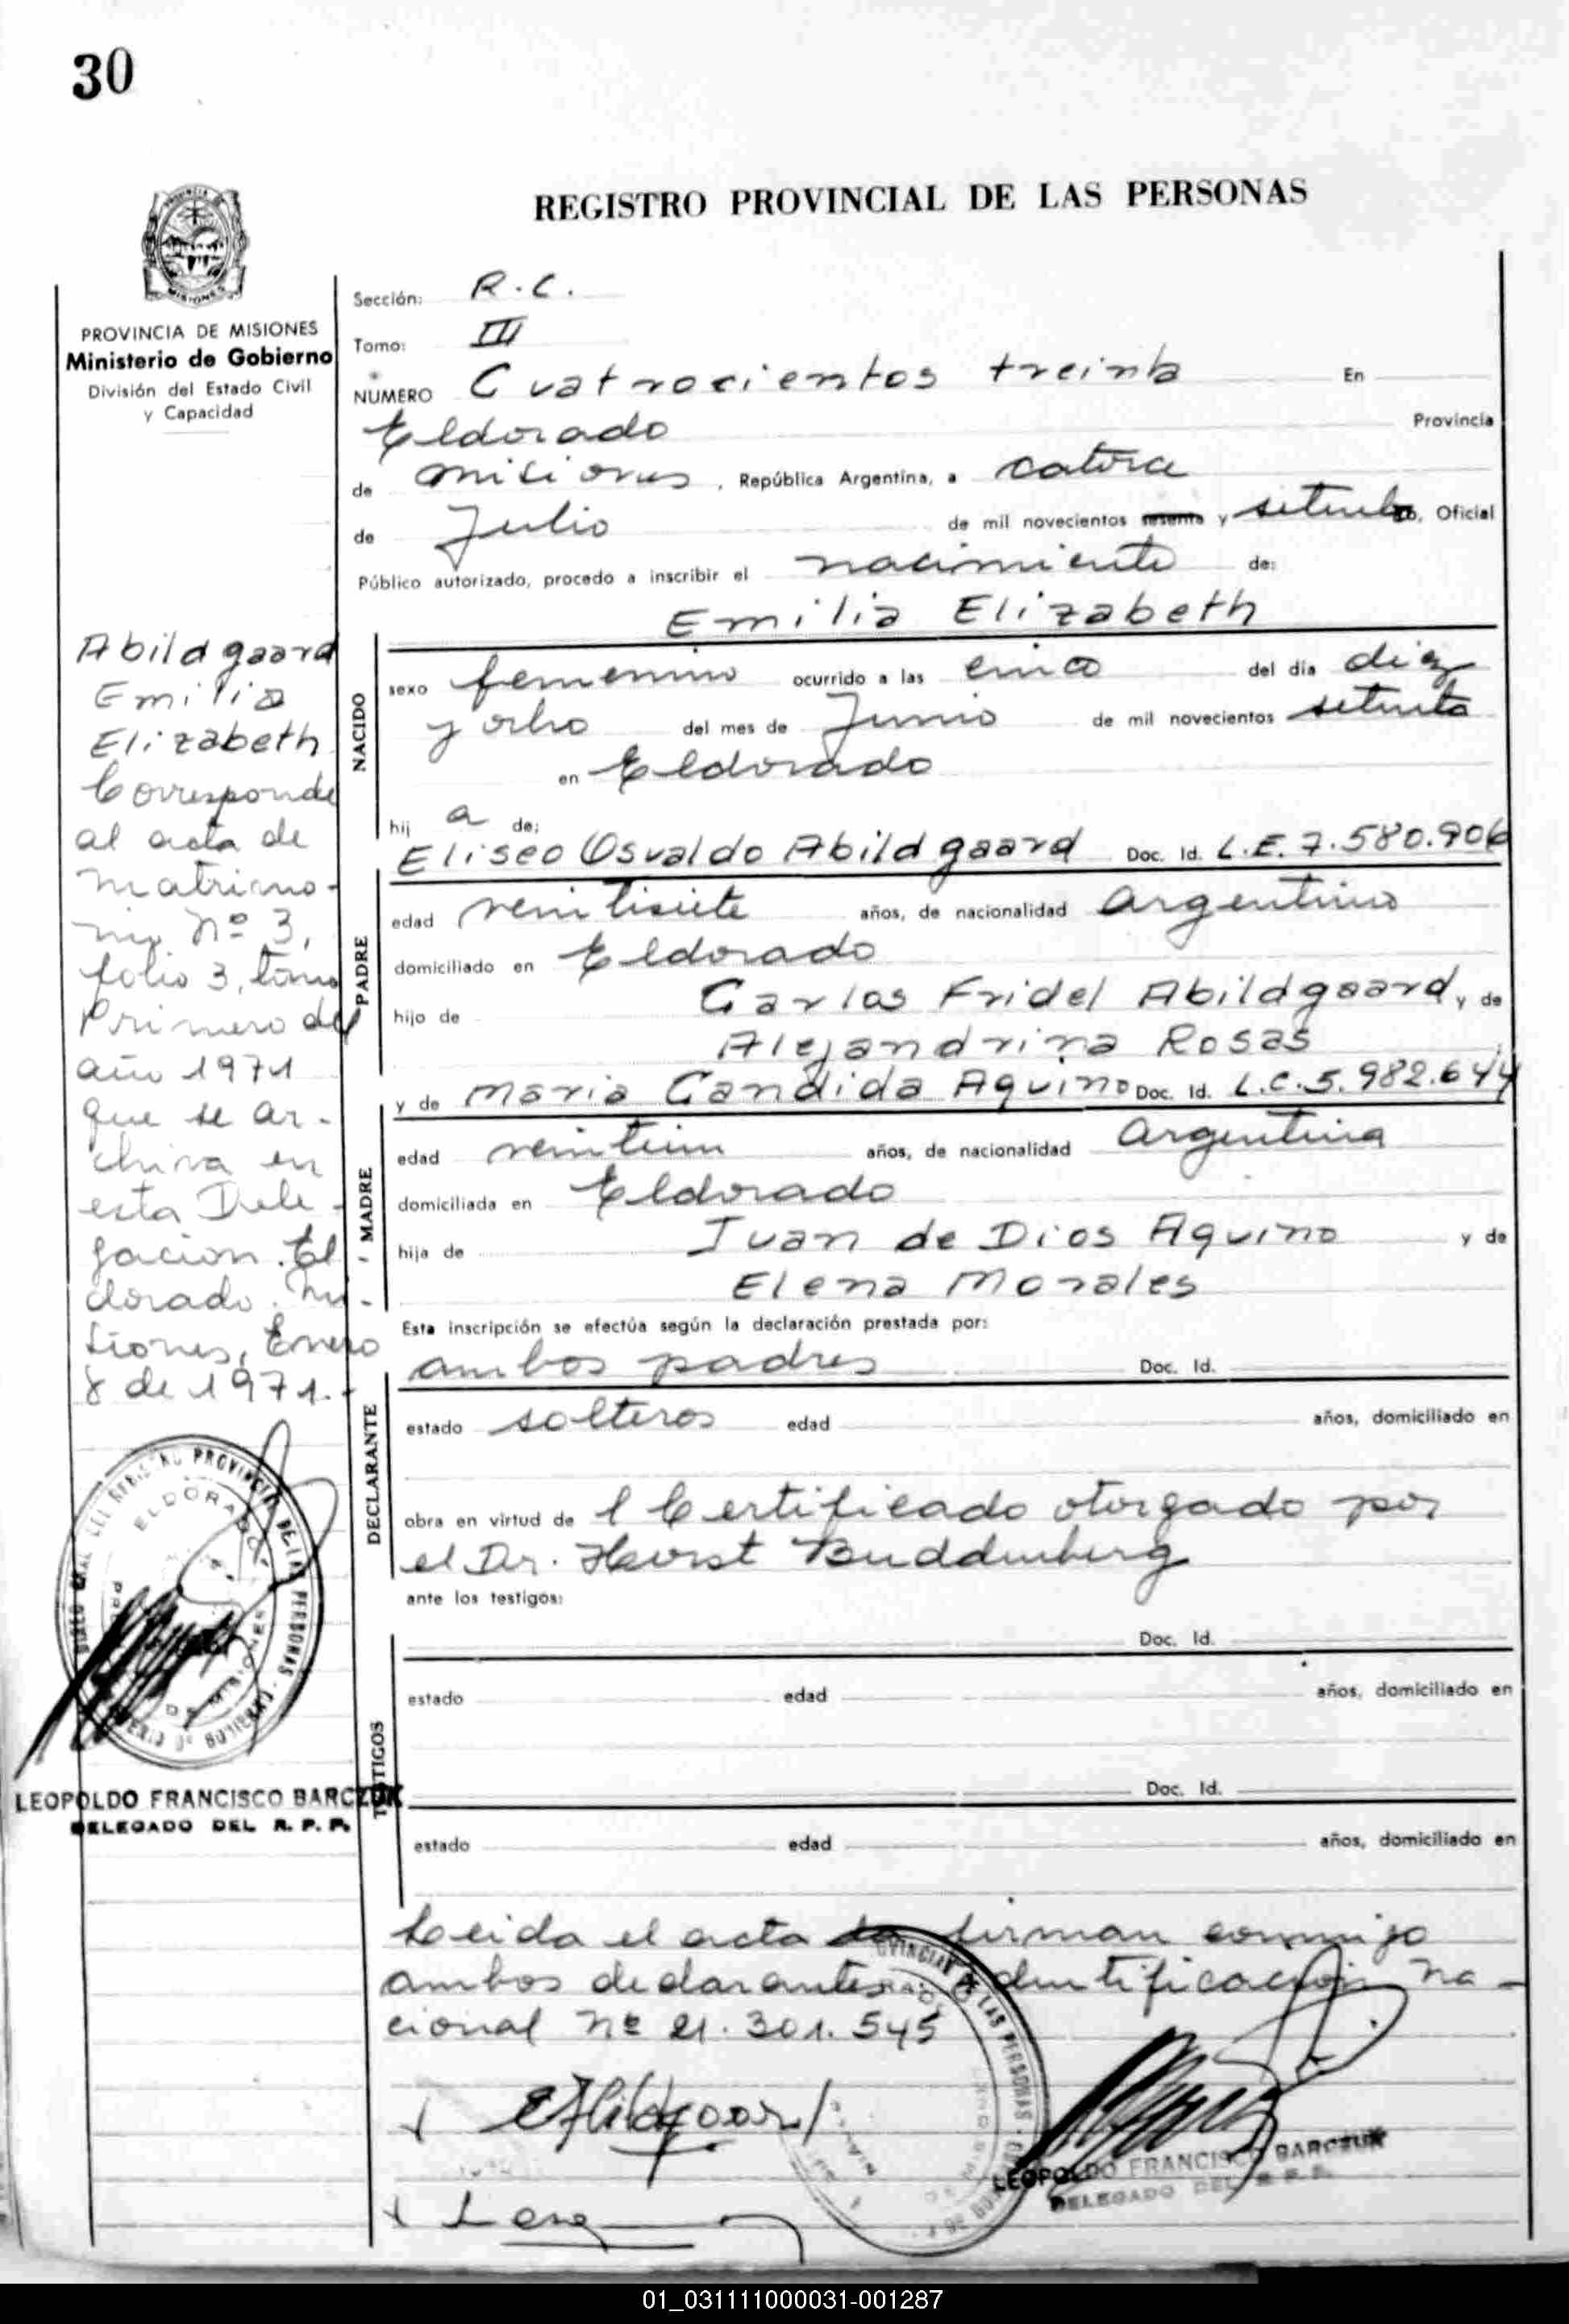 30
REGISTRO PROVINCIAL DE LAS PERSONAS
PROVINCIA DE MISIONES
Ministerio de Gobierno
División del Estado Civil
y Capacidad
Abildgaard
Emilia
Elizabeth
Corresponde
al acta de
matrimo-
nio Nº 3,
folio 3, tomo
Primero del
año 1971
que se ar-
chiva en
esta Dele-
gacion. El
dorado. Mi-
siones, Enero
8 de 1971.-
ELDORADO
LEOPOLDO FRANCISCO BARCZUK
DELEGADO DEL R. P. P.
Sección: R.C.
Tomo: III
NUMERO Cuatrocientos treinta En
Eldorado Provincia
de Misiones, República Argentina, a catorce
de Julio de mil novecientos sesenta y setenta, Oficial
Público autorizado, procedo a inscribir el nacimiento de:
Emilia Elizabeth
NACIDO
sexo femenino ocurrido a las cinco del día diez
y ocho del mes de Junio de mil novecientos setenta
en Eldorado
hij a de:
Eliseo Osvaldo Abildgaard Doc. Id. L.E. 7.580.906
PADRE
edad veintisiete años, de nacionalidad Argentino
domiciliado en Eldorado
hijo de Carlos Fridel Abildgaard, y de
Alejandrina Rosas
y de Maria Candida Aquino Doc. Id. L.C. 5.982.644
MADRE
edad veintiun años, de nacionalidad Argentina
domiciliada en Eldorado
hija de Juan de Dios Aquino y de
Elena Morales
Esta inscripción se efectúa según la declaración prestada por:
ambos padres Doc. Id.
DECLARANTE
estado solteros edad años, domiciliado en
obra en virtud de l Certificado otorgado por
el Dr. Horst Buddenberg
ante los testigos:
TESTIGOS
Doc. Id.
estado edad años, domiciliado en
Doc. Id.
estado edad años, domiciliado en
Leida el acta la firman conmigo
ambos declarantes Identificacion Na-
cional Nº 21.301.545
LEOPOLDO FRANCISCO BARCZUK
DELEGADO DEL R. P. P.
01_031111000031-001287